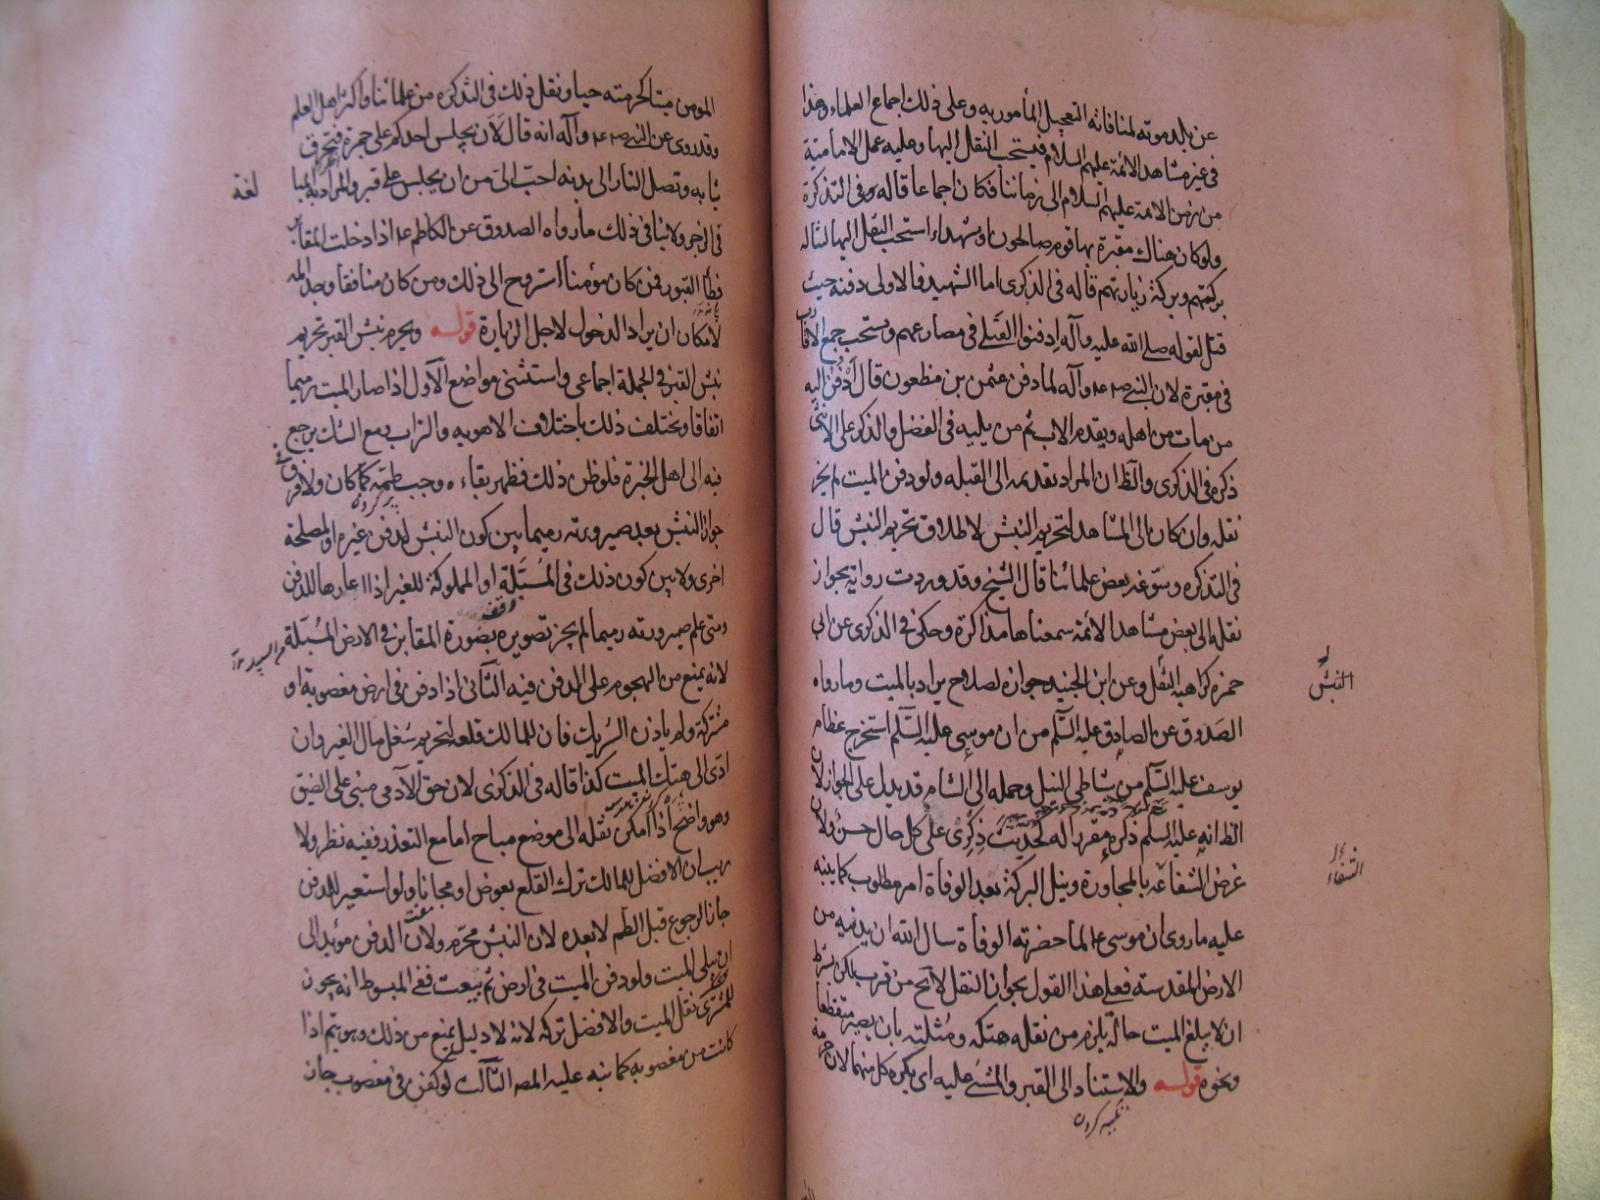 عن بلد موته لمنافاته التعجيل المأمور به وعلى ذلك اجماع العلماء وهذا
في غير مشاهد الائمة عليهم السلام فيستحب النقل اليها وعليه عمل الامامية
من زمن الائمة عليهم السلام الى زماننا فكان اجماعا قاله في التذكرة
ولو كان هناك مقبرة بها قوم صالحون او شهداء استحب النقل اليها لتناله
بركتهم وبركة زيارتهم قاله في الذكرى اما الشهيد فالاولى دفنه حيث
قتل لقوله صلى الله عليه وآله ادفنوا القتلى في مصارعهم ويستحب جمع الاقارب
في مقبرة لان النبي ص ع وآله لما دفن عثمن بن مظعون قال أدفن اليه
من مات من اهله ويقدم الاب ثم من يليه في الفضل والذكر على الانثى
ذكره في الذكرى والظ ان المراد تقديمه الى القبله ولو دفن الميت لم يجز
نقله وان كان الى المشاهد لتحريم النبش لاطلاق تحريم النبش قال
في التذكره وسوغه بعض علمائنا قال الشيخ وقد وردت رواية بجواز
نقله الى بعض مشاهد الائمة سمعناها مذاكرة وحكى في الذكرى عن ابن
حمزه كراهية النقل وعن ابن الجنيد جوازه لصلاح يراد بالميت وما رواه
النبش
الصدوق عن الصادق عليه السلم من ان موسى عليه السلم استخرج عظام
يوسف عليه السلم من شاطئ النيل وحمله الى الشام قد يدل على الجواز لان
الظ انه عليه السلم ذكره مقررا له لحديث ذكري على كل حال حسن ولان
غرض الشفاعة بالمجاورة ونيل البركة بعد الوفاة امر مطلوب كما ينبه
عليه ما روي ان موسى ع لما حضرته الوفاة سال الله ان يدنيه من
الارض المقدسة فعلى هذا القول بجواز النقل لا يخ من قرب لكن بشرط
ان لا يبلغ الميت حالة يلزم من نقله هتكه ومثلته بان يصير متقطعا
ونحوه قوله والاستناد الى القبر والمشي عليه اي يكره كل منهما لان حرمة
تكيه كردن
المومن ميتا كحرمته حيا ونقل ذلك في التذكره من علمائنا واكثر اهل العلم
وقد روى عن النبي ص ع وآله انه قال لان يجلس احدكم على جمرة فتحرق
ثيابه وتصل النار الى بدنه احب الي من ان يجلس على قبر والمراد به المبالغة
في الزجر ولا ينافي ذلك ما رواه الصدوق عن الكاظم ع اذا دخلت المقابر
فطأ القبور فمن كان مؤمنا استروح الى ذلك ومن كان منافقا وجد المه
لامكان ان يراد الدخول لاجل الزيارة قوله ويحرم نبش القبر تحريم
نبش القبر في الجملة اجماعي واستثنى مواضع الاول اذا صار الميت رميما
اتفاقا ويختلف ذلك باختلاف الاهويه والتراب ومع الشك يرجع
فيه الى اهل الخبرة فلو ظن ذلك فظهر بقاءه وجب طمه كما كان ولا فرق في
پر كردن
جواز النبش بعد صيرورته رميما بين كون النبش لدفن غيره او لمصلحة
اخرى ولا بين كون ذلك في المسبلة او المملوكة للغير اذا اعارها للدفن
ومتى علم صيرورته رميما لم يجز تصويره بصورة المقابر في الارض المسبلة
لانه يمنع من الهجوم على الدفن فيه الثاني اذا دفن في ارض مغصوبة او
مشتركة ولم ياذن الشريك فان للمالك قلعه لتحريم شغل مال الغير وان
ادى الى هتك الميت كذا قاله في الذكرى لان حق الآدمي مبني على الضيق
وهو واضح اذا امكن نقله الى موضع مباح اما مع التعذر ففيه نظر ولا
ريب ان الافضل للمالك ترك القلع بعوض او مجانا ولو استعير للدفن
جاز الرجوع قبل الطم لا بعده لان النبش محرم ولان الدفن مؤبد الى
ان يبلى الميت ولو دفن الميت في ارض ثم بيعت ففي المبسوط انه يجوز
للمشتري نقل الميت والافضل تركه لانه لا دليل يمنع من ذلك وهو يتم اذا
كانت من مغصوبه كما نبه عليه المصـ الثالث لو كفن في مغصوب جاز